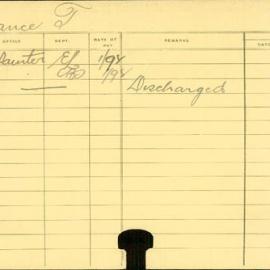 ance T
OFFICE DEPT. RATE OF PAY REMARKS DATE
Painter El 1/9¼
/9¼ Discharged